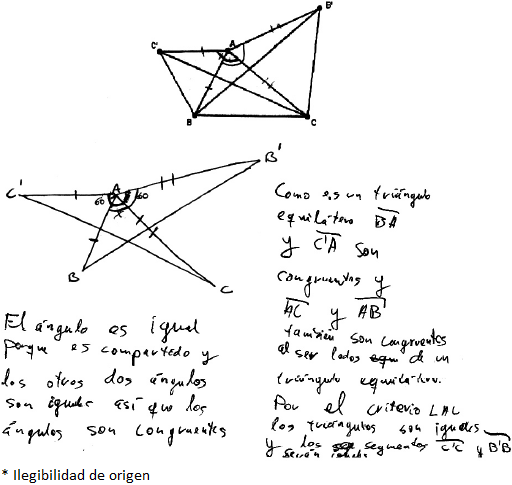 B'
C'
A
B
C
B'
C'
A
60
60
x
B
C
Como es un triángulo
equilátero BA
y C'A son
congruentes y
AC y AB'
también son congruentes
al ser lados de un
triángulo equilátero.
Por el criterio LAL
los triángulos son iguales
y los segmentos C'C y B'B
serán
El ángulo es igual
porque es compartido y
los otros dos ángulos
son iguales así que los
ángulos son congruentes
* Ilegibilidad de origen